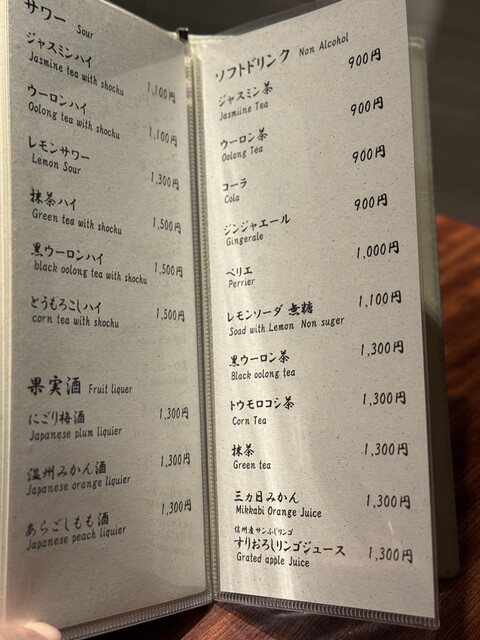 サワー Sour
ジャスミンハイ 1,100円
Jasmine tea with shochu
ウーロンハイ 1,100円
Oolong tea with shochu
レモンサワー 1,300円
Lemon Sour
抹茶ハイ 1,500円
Green tea with shochu
黒ウーロンハイ 1,500円
black oolong tea with shochu
とうもろこしハイ 1,500円
corn tea with shochu
果実酒 Fruit liquer
にごり梅酒 1,300円
Japanese plum liquier
温州みかん酒 1,300円
Japanese orange liquier
あらごしもも酒 1,300円
Japanese peach liquier
ソフトドリンク Non Alcohol
ジャスミン茶 900円
Jasmiine Tea
ウーロン茶 900円
Oolong Tea
コーラ 900円
Cola
ジンジャエール 900円
Gingerale
ペリエ 1,000円
Perrier
レモンソーダ 無糖 1,100円
Soad with Lemon Non suger
黒ウーロン茶 1,300円
Black oolong tea
トウモロコシ茶 1,300円
Corn Tea
抹茶 1,300円
Green tea
三ヵ日みかん 1,300円
Mikkabi Orange Juice
信州産サンふじリンゴ
すりおろしリンゴジュース 1,300円
Grated apple Juice